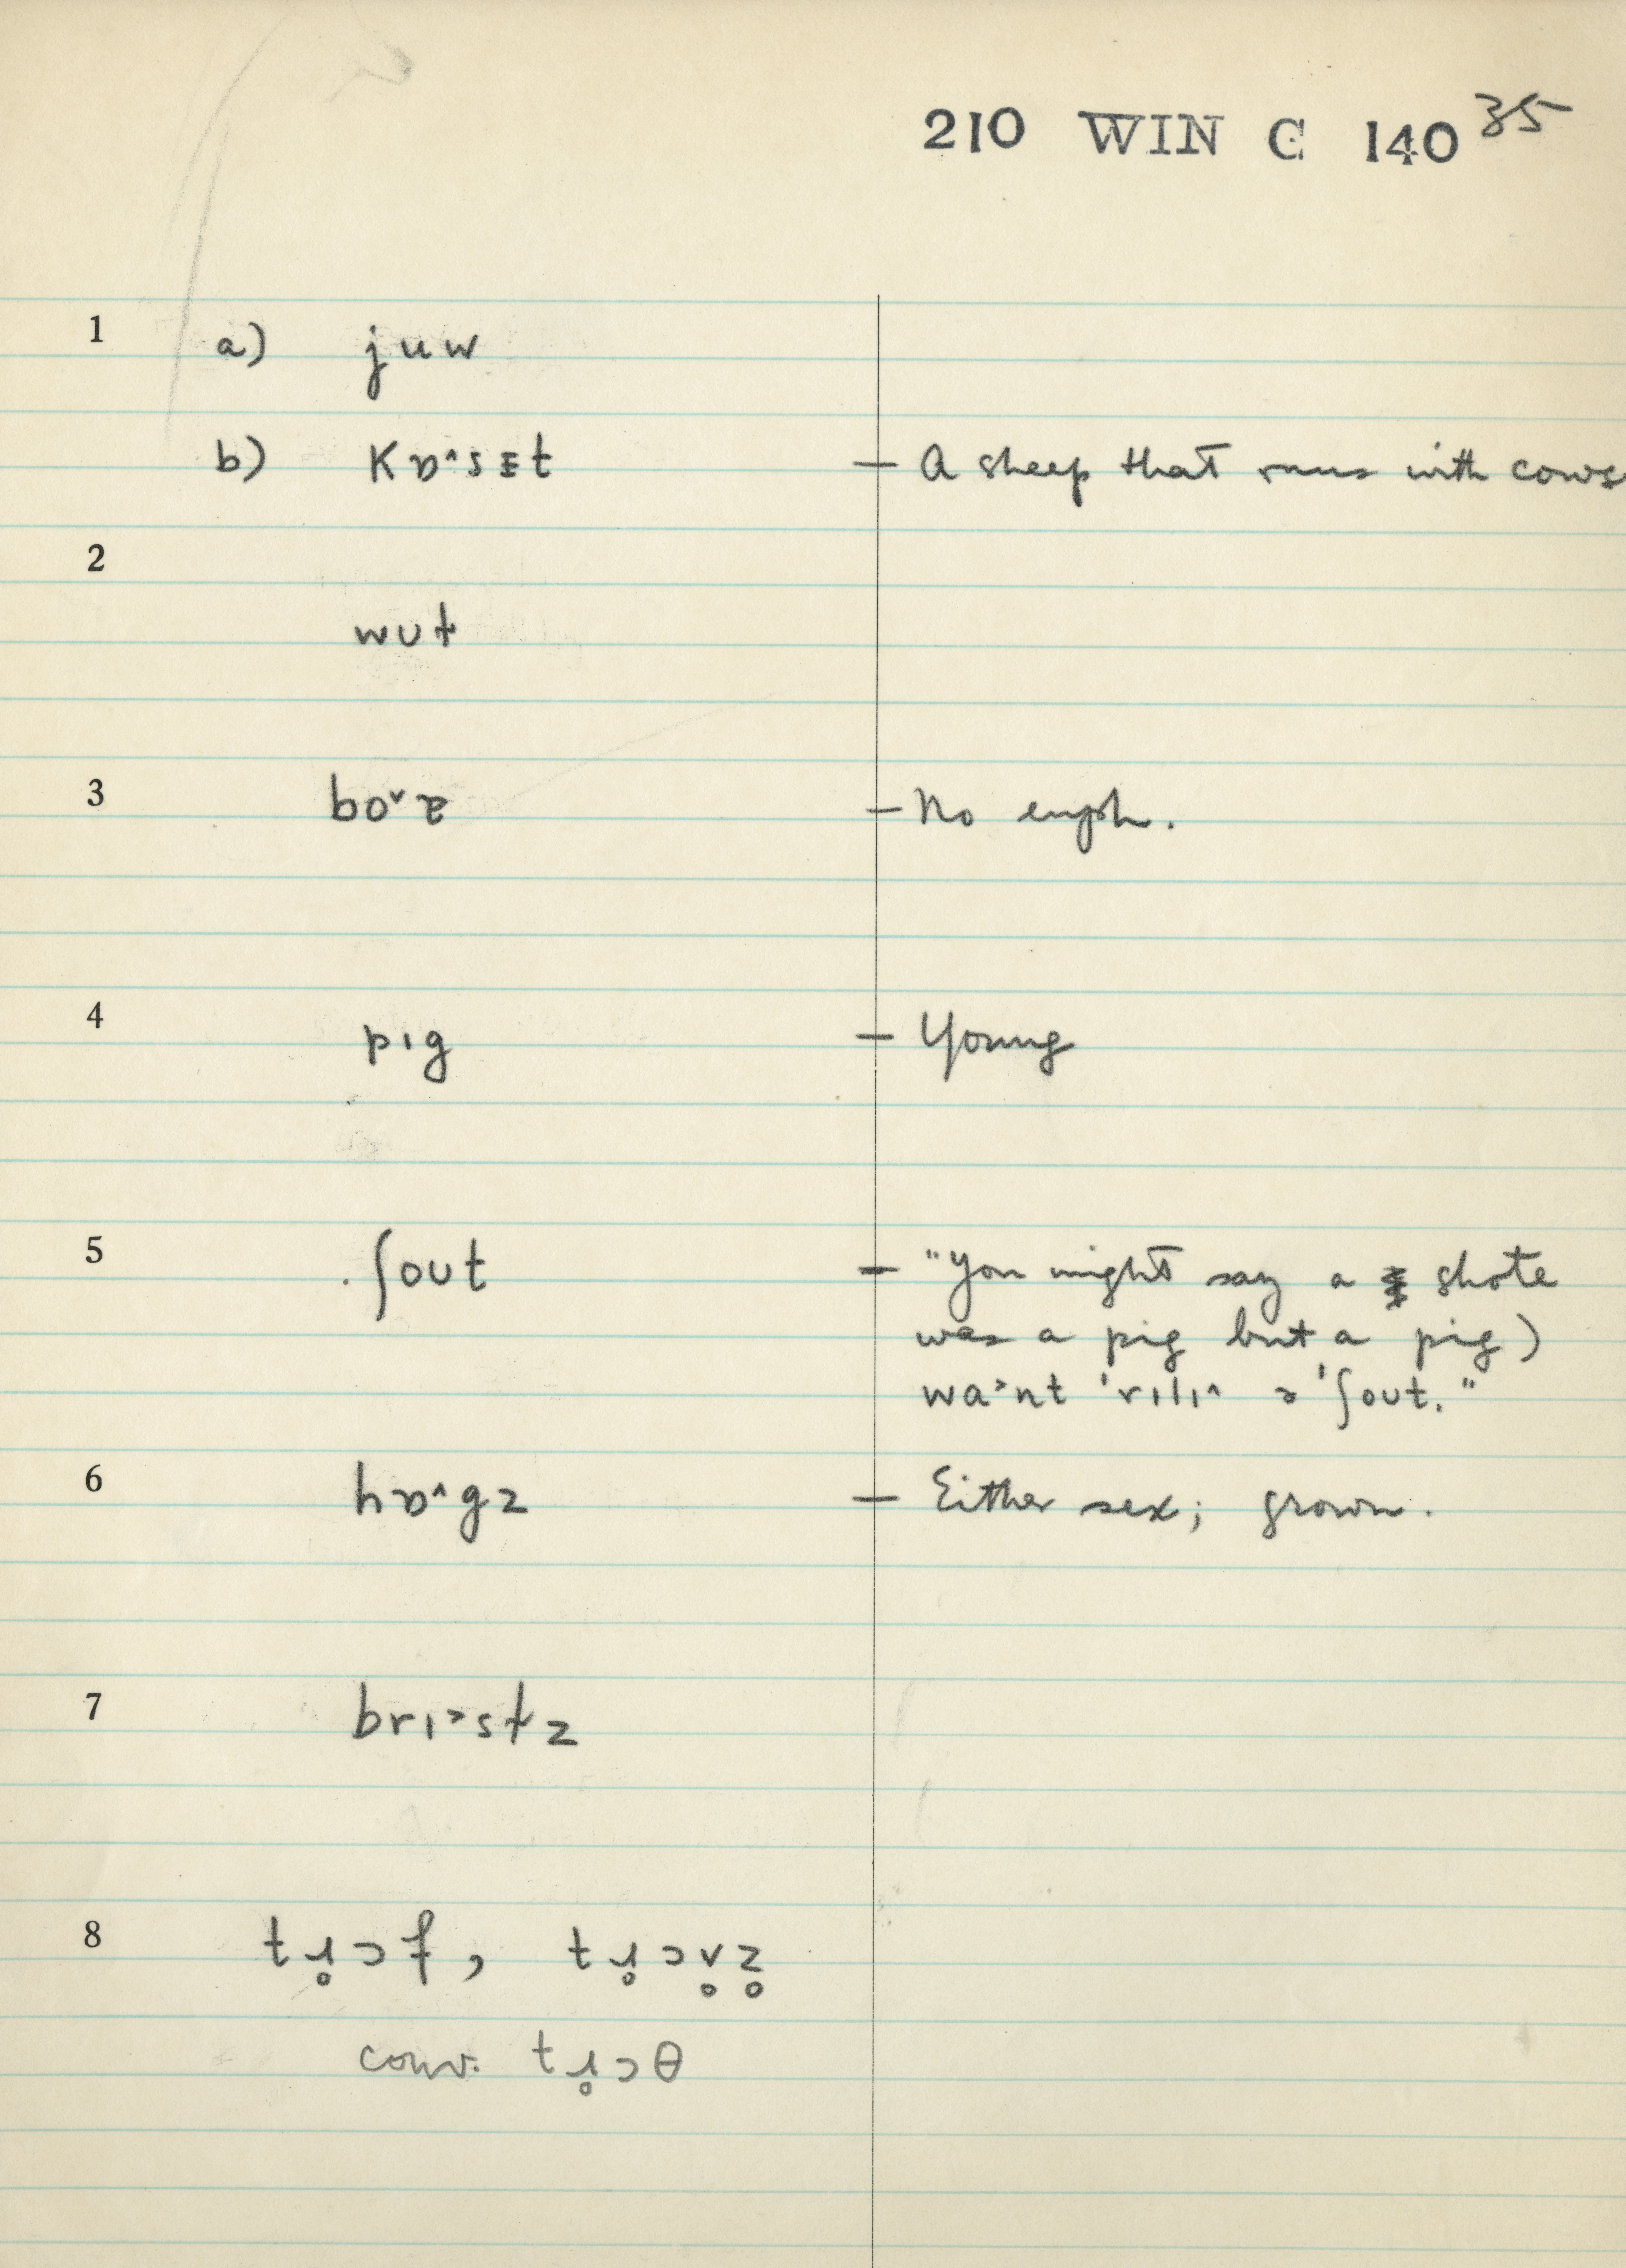 210 WIN C 140 35
1 a) juw
b) kɒ˄sᵻt — A sheep that runs with cows
2
wʊt
3 bo˅ɐ — No euph.
4 pɪg — Young
5 ʃoʊt — "You might say a shote
was a pig but a pig)
wa˃nt 'rɪlɪ˄ ə 'ʃoʊt."
6 hɒ˄gz — Either sex; grown.
7 brɪ˃stz
8 tɹ̥ɔf, tɹ̥ɔv̥z̥
conv. tɹ̥ɔθ